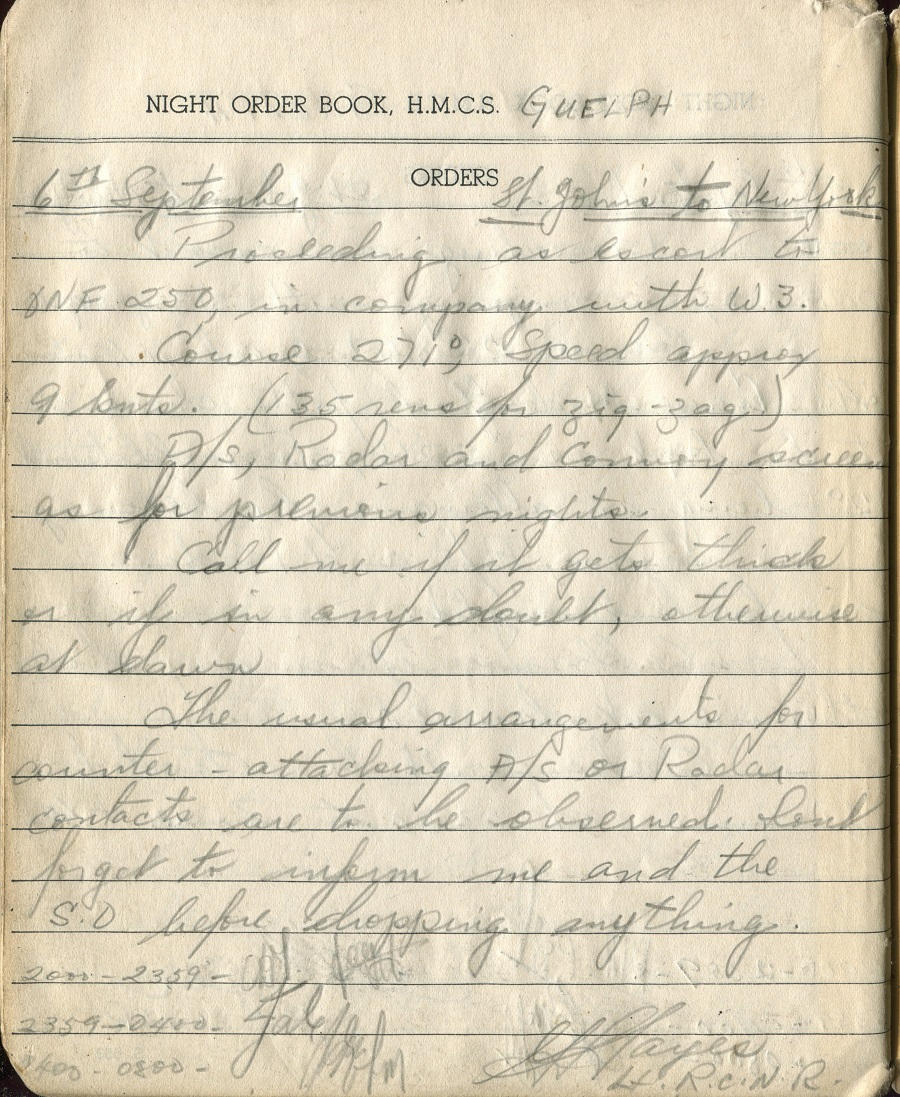 NIGHT ORDER BOOK, H.M.C.S. GUELPH
ORDERS
6TH September St. John's to New York
Proceeding as escort to
XNF 250, in company with W.3.
Course 271°, Speed approx
9 knts. (135 revs for zig-zag.)
A/S, Radar and Convoy screen
as for previous nights.
Call me if it gets thick
or if in any doubt, otherwise
at dawn
The usual arrangements for
counter-attacking A/S or Radar
contacts are to be observed. Dont
forget to inform me and the
S.O before dropping anything.
2000-2359-
2359-0400-
0400-0800- Hayes
Lt. R.C.N.R.